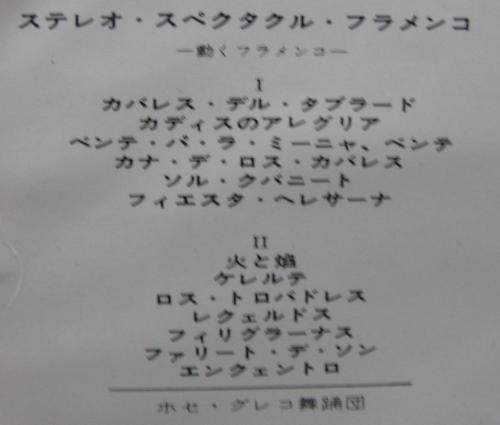 ステレオ・スペクタクル・フラメンコ
—動くフラメンコ—
I
カバレス・デル・タブラード
カディスのアレグリア
ベンテ・パ・ラ・ミーニャ、ベンテ
カナ・デ・ロス・カバレス
ソル・クバニート
フィエスタ・ヘレサーナ
II
火と焔
ケレルテ
ロス・トロバドレス
レクェルドス
フィリグラーナス
ファリート・デ・ソン
エンクェントロ
ホセ・グレコ舞踊団